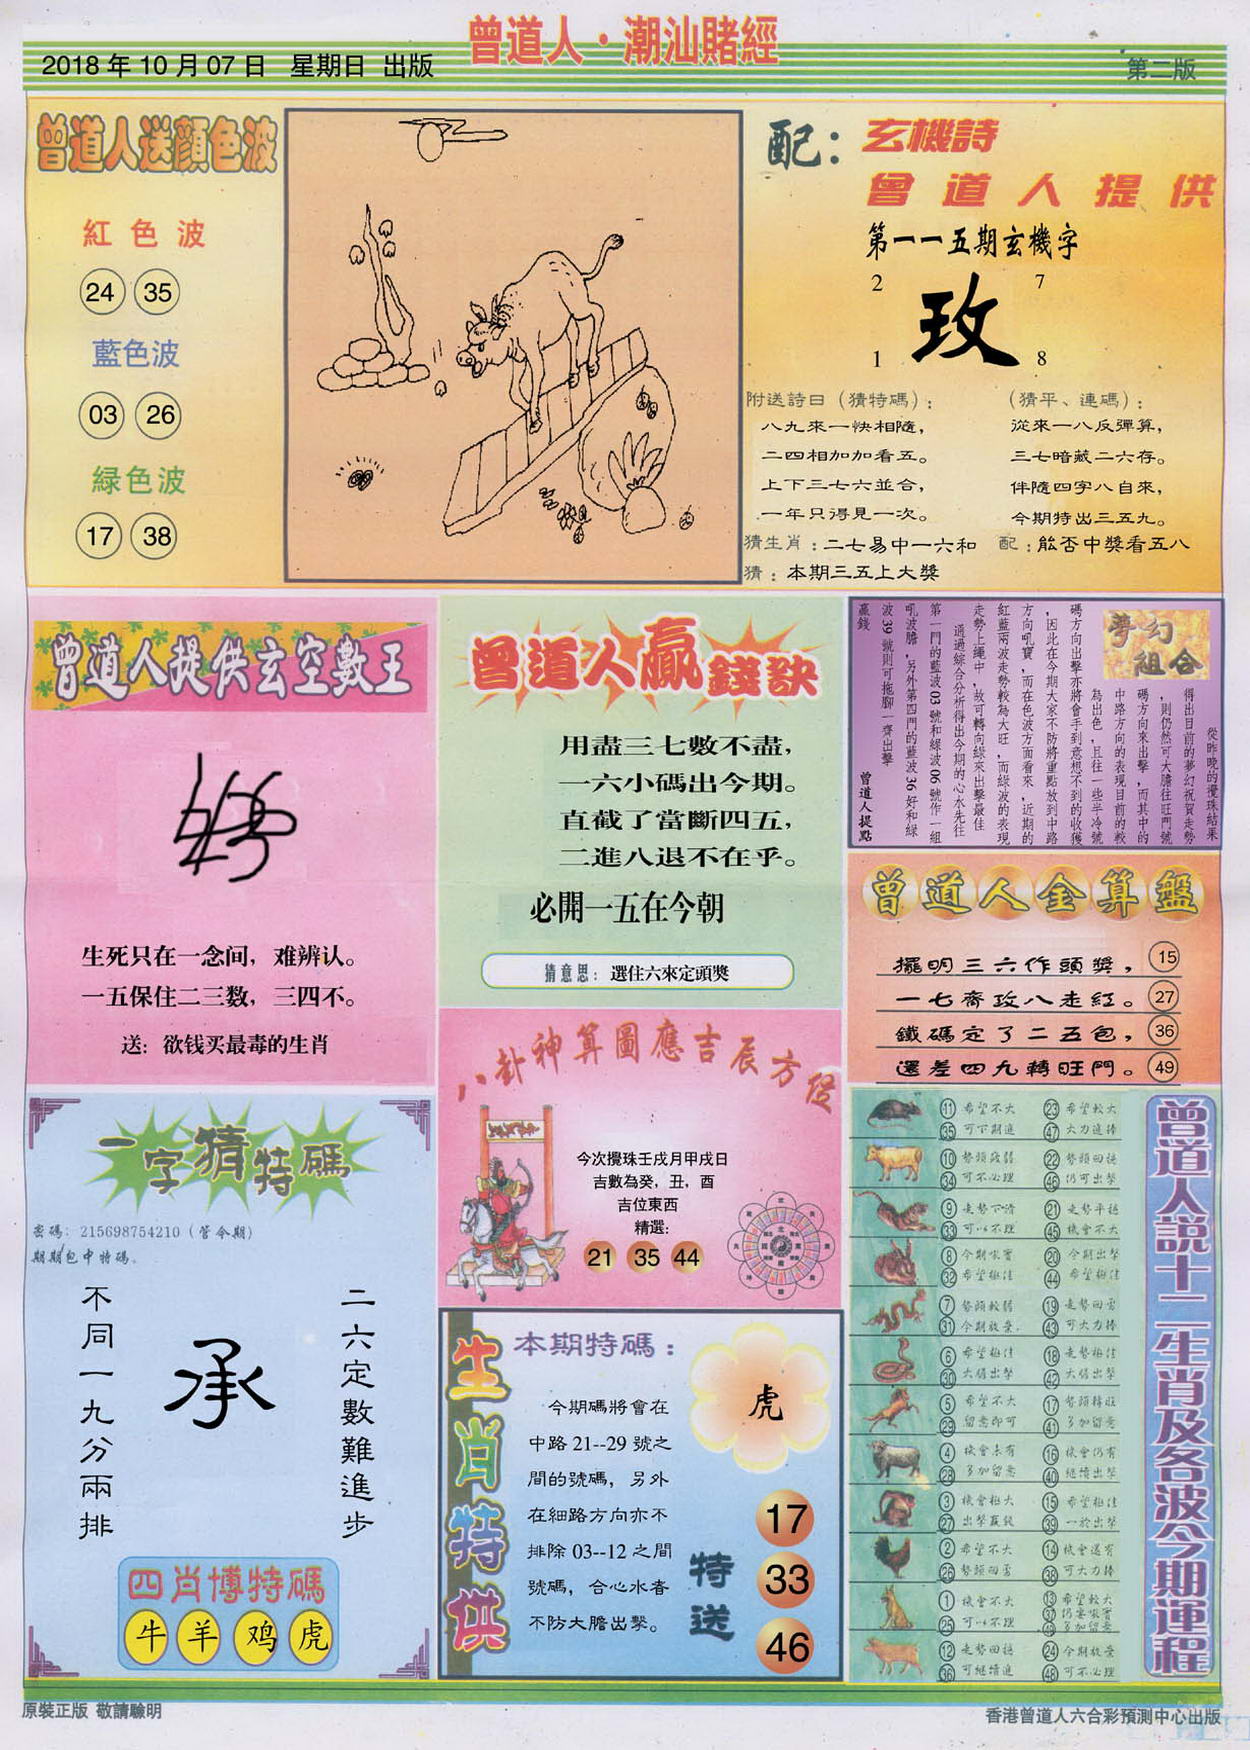 曾道人·潮汕賭經
2018年10月07日 星期日 出版
第二版
曾道人送顏色波
紅色波
24 35
藍色波
03 26
緑色波
17 38
配：玄機詩
曾道人提供
第一一五期玄機字
2 7
玫
1 8
附送詩曰（猜特碼）：
八九來一快相隨，
二四相加加看五。
上下三七六並合，
一年只得見一次。
（猜平、連碼）：
從來一八反彈算，
三七暗藏二六存。
伴隨四字八自來，
今期特出三五九。
猜生肖：二七易中一六和 配：能否中獎看五八
猜：本期三五上大獎
曾道人提供玄空數王
生死只在一念间，难辨认。
一五保住二三数，三四不。
送：欲钱买最毒的生肖
曾道人贏錢訣
用盡三七數不盡，
一六小碼出今期。
直截了當斷四五，
二進八退不在乎。
必開一五在今朝
猜意思：選住六來定頭獎
夢幻組合
從昨晚的攪珠結果
得出目前的夢幻祝賀走勢
，則仍然可大膽往旺門號
碼方向來出擊，而其中的
中路方向的表現目前的較
為出色，且往一些半冷號
碼方向出擊亦將會手到意想不到的收獲
，因此在今期大家不防將重點放到中路
方向吼寶，而在色波方面看來，近期的
紅藍兩波走勢較為大旺，而綠波的表現
走勢上繩中，故可轉向綠來出擊最佳
通過綜合分析得出今期的心水先往
第一門的藍波03號和綠波06號作一組
吼波膽，另外第四門的藍波36好和綠
波39號則可拖腳一齊出擊
贏錢
曾道人提點
曾道人金算盤
擺明三六作頭獎， 15
一七齊攻八走紅。 27
鐵碼定了二五包， 36
還差四九轉旺門。 49
八卦神算圖應吉辰方位
今次攪珠壬戌月甲戌日
吉數為癸，丑，酉
吉位東西
精選：
21 35 44
一字猜特碼
密碼：215698754210（管今期）
期期包中特碼。
二六定數難進步
承
不同一九分兩排
四肖博特碼
牛 羊 鸡 虎
生肖特供
本期特碼：
虎
今期碼將會在
中路21--29號之
間的號碼，另外
在細路方向亦不
排除03--12之間
號碼，合心水者
不防大膽出擊。
特送
17
33
46
曾道人説十二生肖及各波今期運程
11 希望不大 23 希望較大
35 可下期進 47 大力進捧
10 勢頭疲弱 22 勢頭回穩
34 可不必理 46 仍可出擊
9 走勢下滑 21 走勢平穩
33 可以不理 45 機會不大
8 今期吼寶 20 今期出擊
32 希望極佳 44 希望極佳
7 勢頭較弱 19 走勢回勇
31 今期放棄 43 可大力捧
6 希望極佳 18 走勢極佳
30 大膽出擊 42 大膽出擊
5 希望不大 17 勢頭轉旺
29 留意即可 41 多加留意
4 機會未有 16 機會仍有
28 多加留意 40 繼續出擊
3 機會極大 15 希望極佳
27 出擊贏錢 39 一於出擊
2 希望不大 14 機會還有
26 勢頭回勇 38 可大力捧
1 機會不大 13 希望較大
25 可以不理 37 仍要吼寶
49 多加留意
12 走勢回穩 24 今期放棄
36 可繼續進 48 可不必理
原裝正版 敬請驗明
香港曾道人六合彩預測中心出版